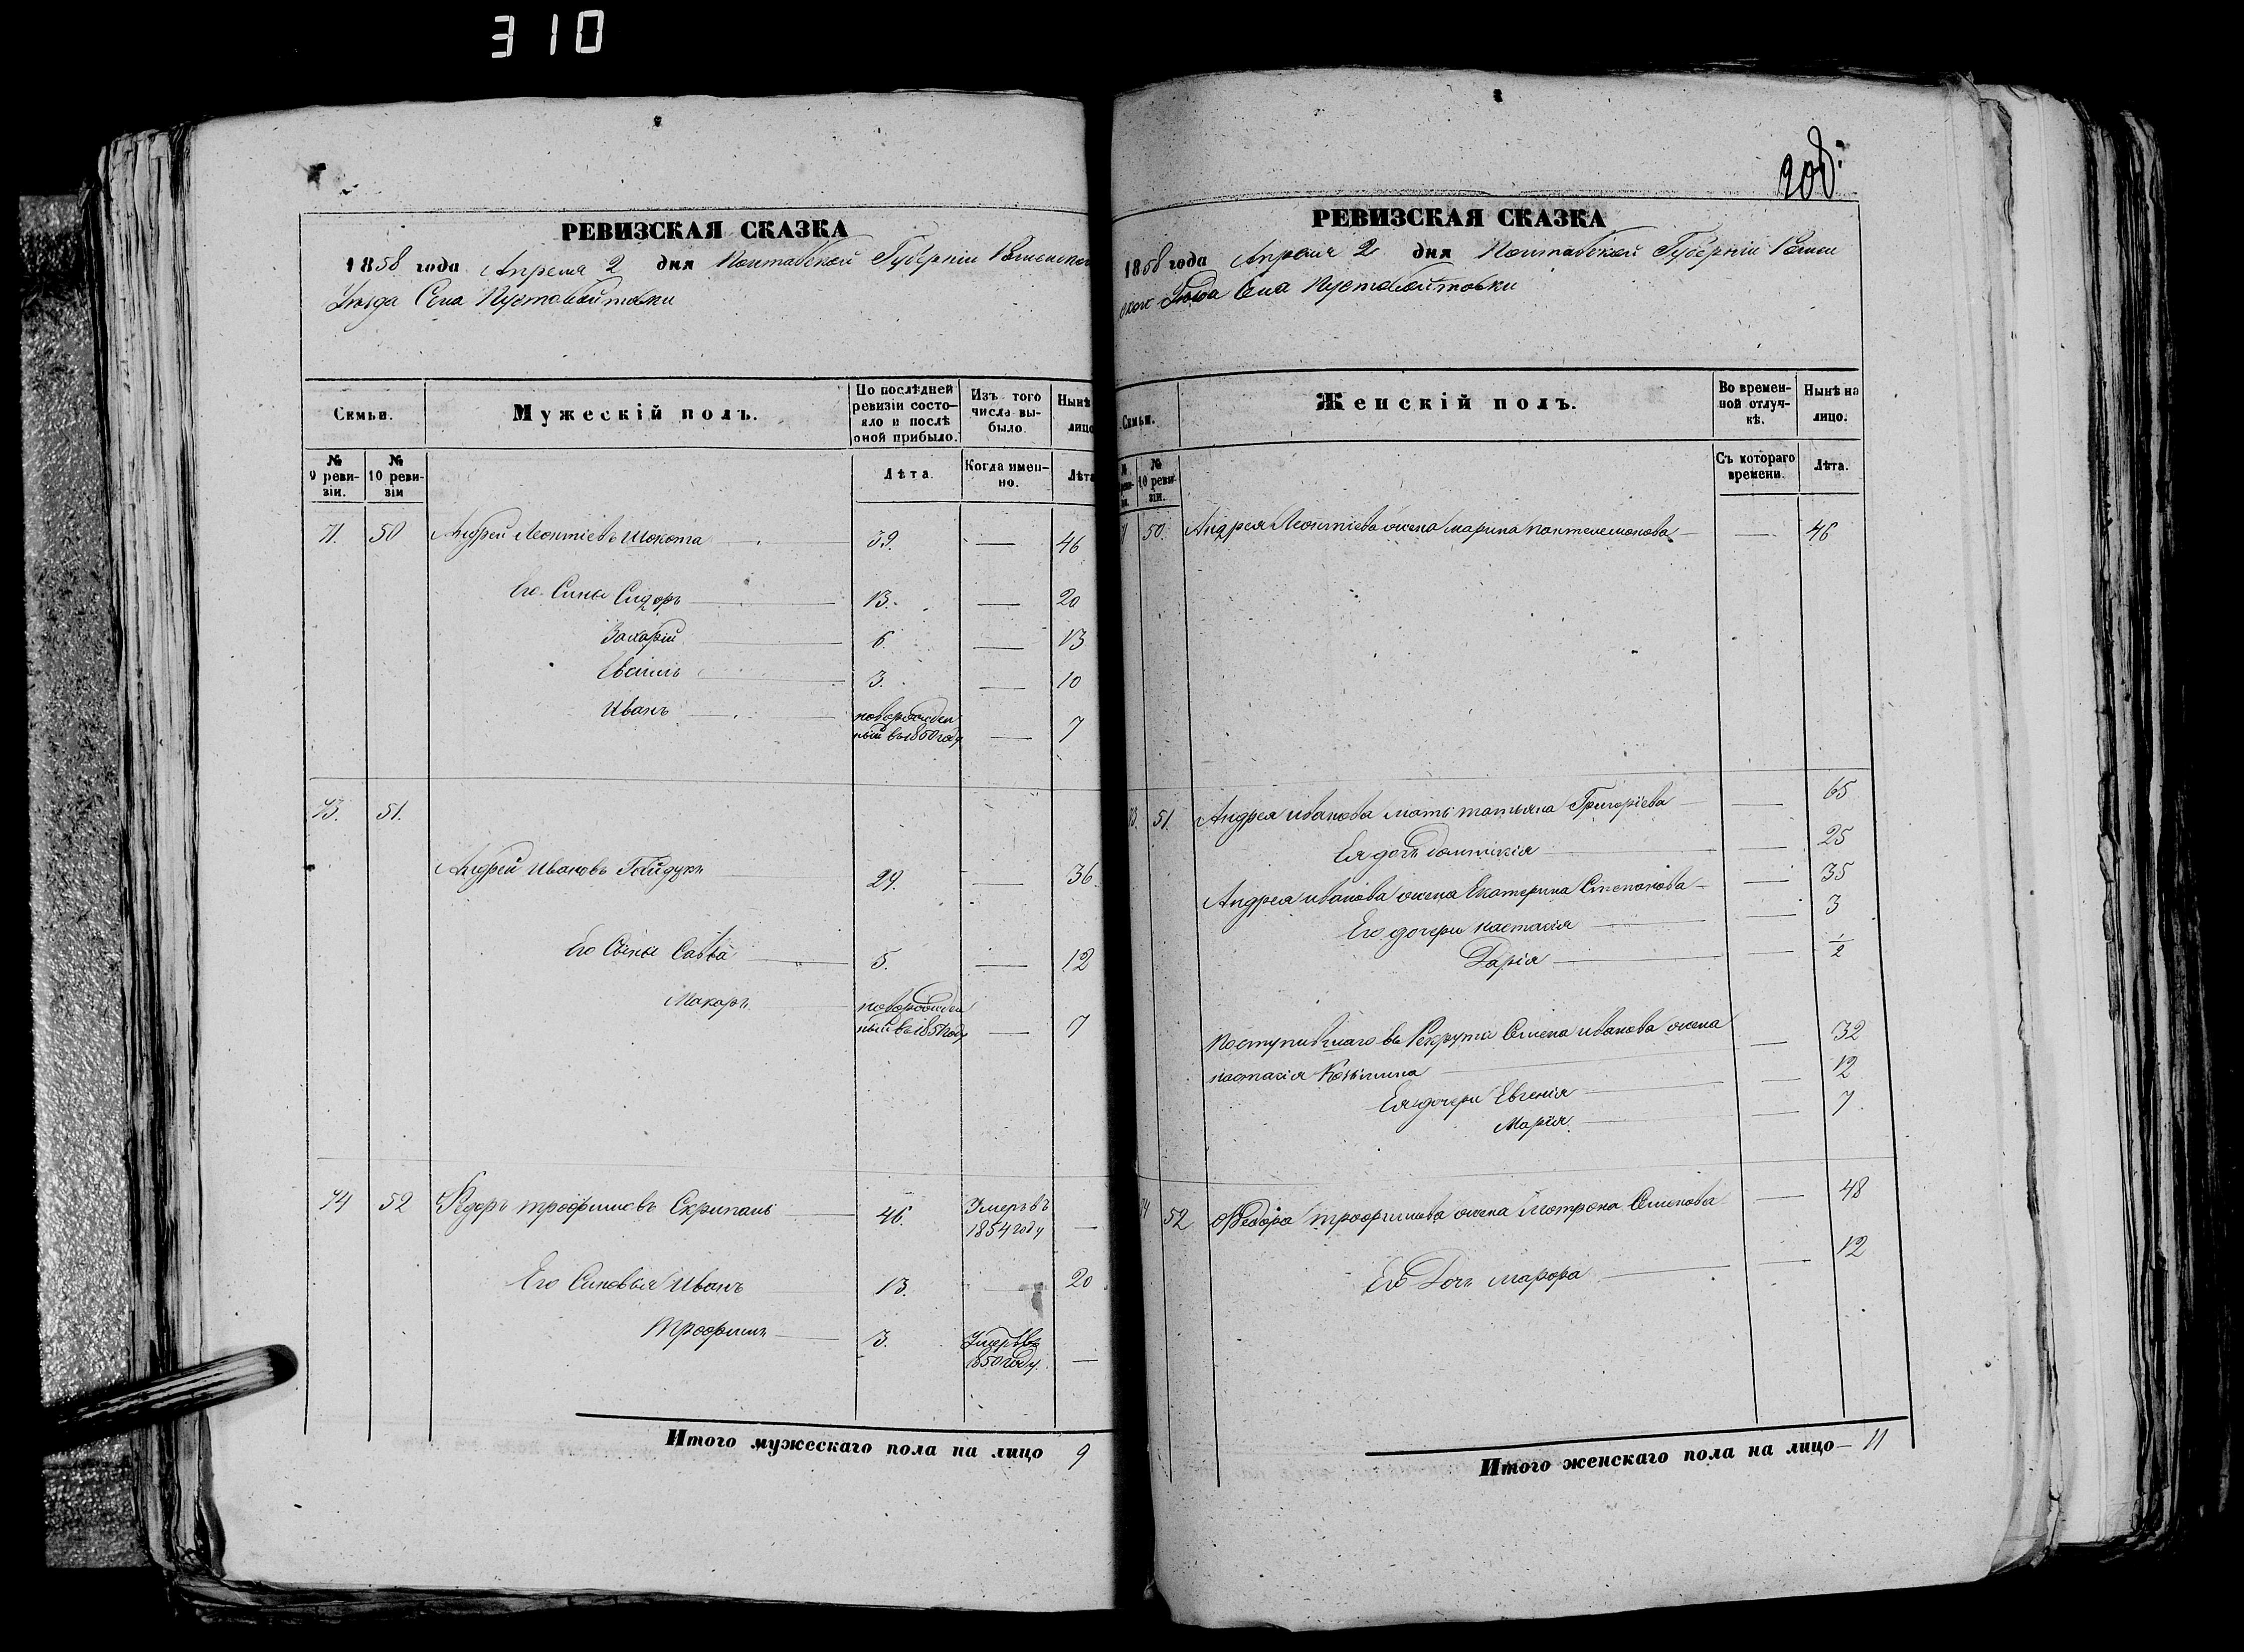 310
208.
РЕВИЗСКАЯ СКАЗКА
1858 года Апреля 2 дня Полтавской Губерніи Роменского
Уѣзда Села Пустовойтовки
Семьи.
Мужескій полъ.
По послѣдней ревизіи состояло и послѣ оной прибыло.
Изъ того числа выбыло.
Нынѣ
лицо
№ 9 ревизіи.
№ 10 ревизіи
Лѣта.
Когда именно.
Лѣта
71. 50 Андрей Леонтіевъ Шокота — 39. — 46
Его Сины Сидоръ — 13. — 20
Захарій — 6. — 13
3. — 10
Иванъ — новорожден
ный въ 1850 году — 7
73. 51.
Андрей Ивановъ Гайдукъ — 29. — 36
Его Сыны Савва — 5. — 12
Макаръ — новорожден
ный въ 1851 году — 7
74 52 Федоръ трофимовъ Скрипаль — 46. Умеръ въ
1854 году —
Его Синовья Иванъ — 13. — 20
Трофимъ — 3. Умеръ въ
1850 году. —
Итого мужескаго пола на лицо 9
РЕВИЗСКАЯ СКАЗКА
1858 года Апреля 2 дня Полтавской Губерніи Ромен
ского Уѣзда Села Пустовойтовки
Семьи.
Женскій полъ.
Во временной отлучкѣ.
Нынѣ на лицо.
№ 10 ревизіи.
Съ котораго времени.
Лѣта.
71 50. Андрея Леонтіева жена марина пантелемонова — 46
73. 51. Андрея иванова мать татьяна Григоріева — 65
Ея дочь — 25
Андрея иванова жена Екатерина Степанова — 35
Его дочери настасія — 3
Дарія — 1/2
Поступившаго въ Рекруты Семена иванова жена — 32
настасія
Ея дочери Евгенія — 12
Марія. — 7
74 52 Федора трофимова жена Мотрона Семенова — 48
Его Дочь марфа — 12
Итого женскаго пола на лицо — 11